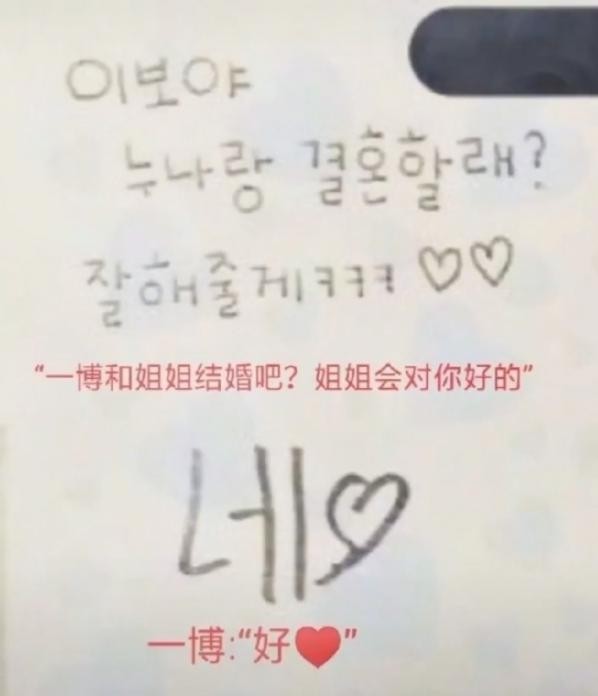 이보야
누나랑 결혼할래?
잘해줄게ㅋㅋㅋ ♡♡
“一博和姐姐结婚吧？姐姐会对你好的”
네♡
一博:“好❤”